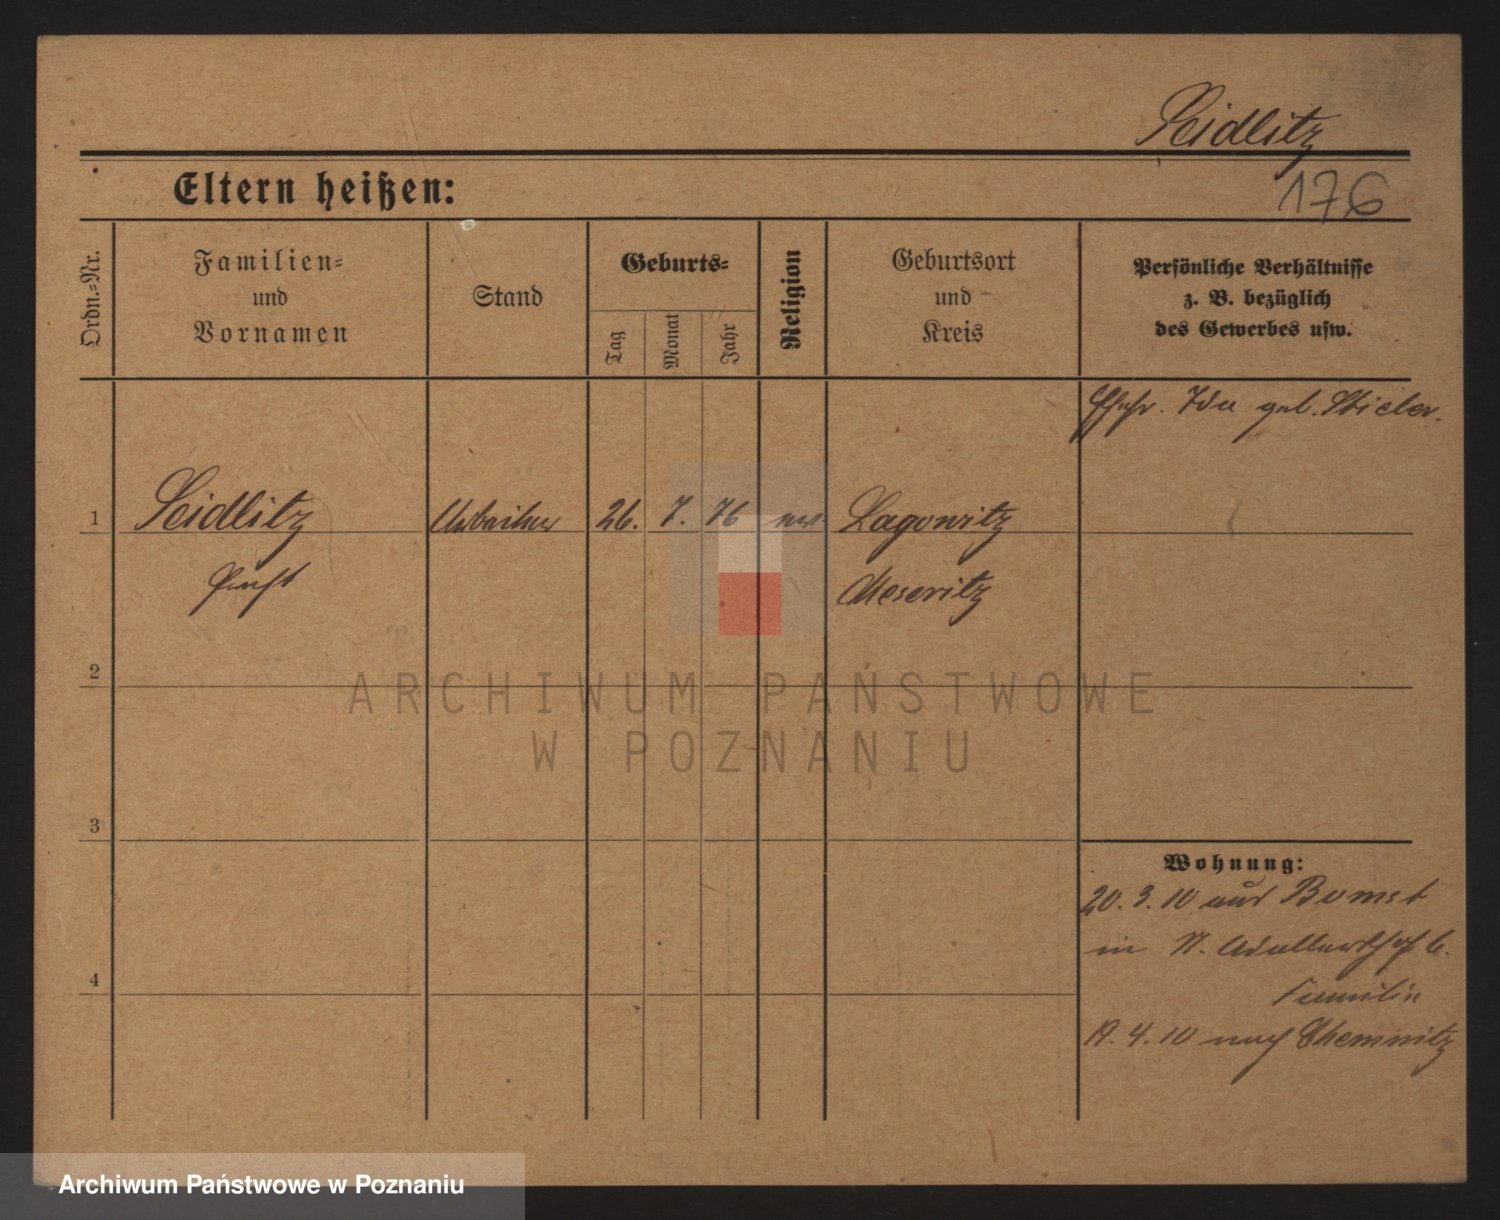 Seidlitz
Eltern heißen:
176
Ordn.=Nr.
Familien=
und
Vornamen
Stand
Geburts=
Tag
Monat
Jahr
Religion
Geburtsort
und
Kreis
Persönliche Verhältnisse
z. B. bezüglich
des Gewerbes usw.
Ehefr. Ida geb. Stieler.
1 Seidlitz Arbeiter 26. 7. 76 ev. Lagowitz
Meseritz
2
ARCHIWUM PAŃSTWOWE
W POZNANIU
3
Wohnung:
20. 3. 10 aus Bomst
in
4
Familie
19. 4. 10 nach Chemnitz
Archiwum Państwowe w Poznaniu